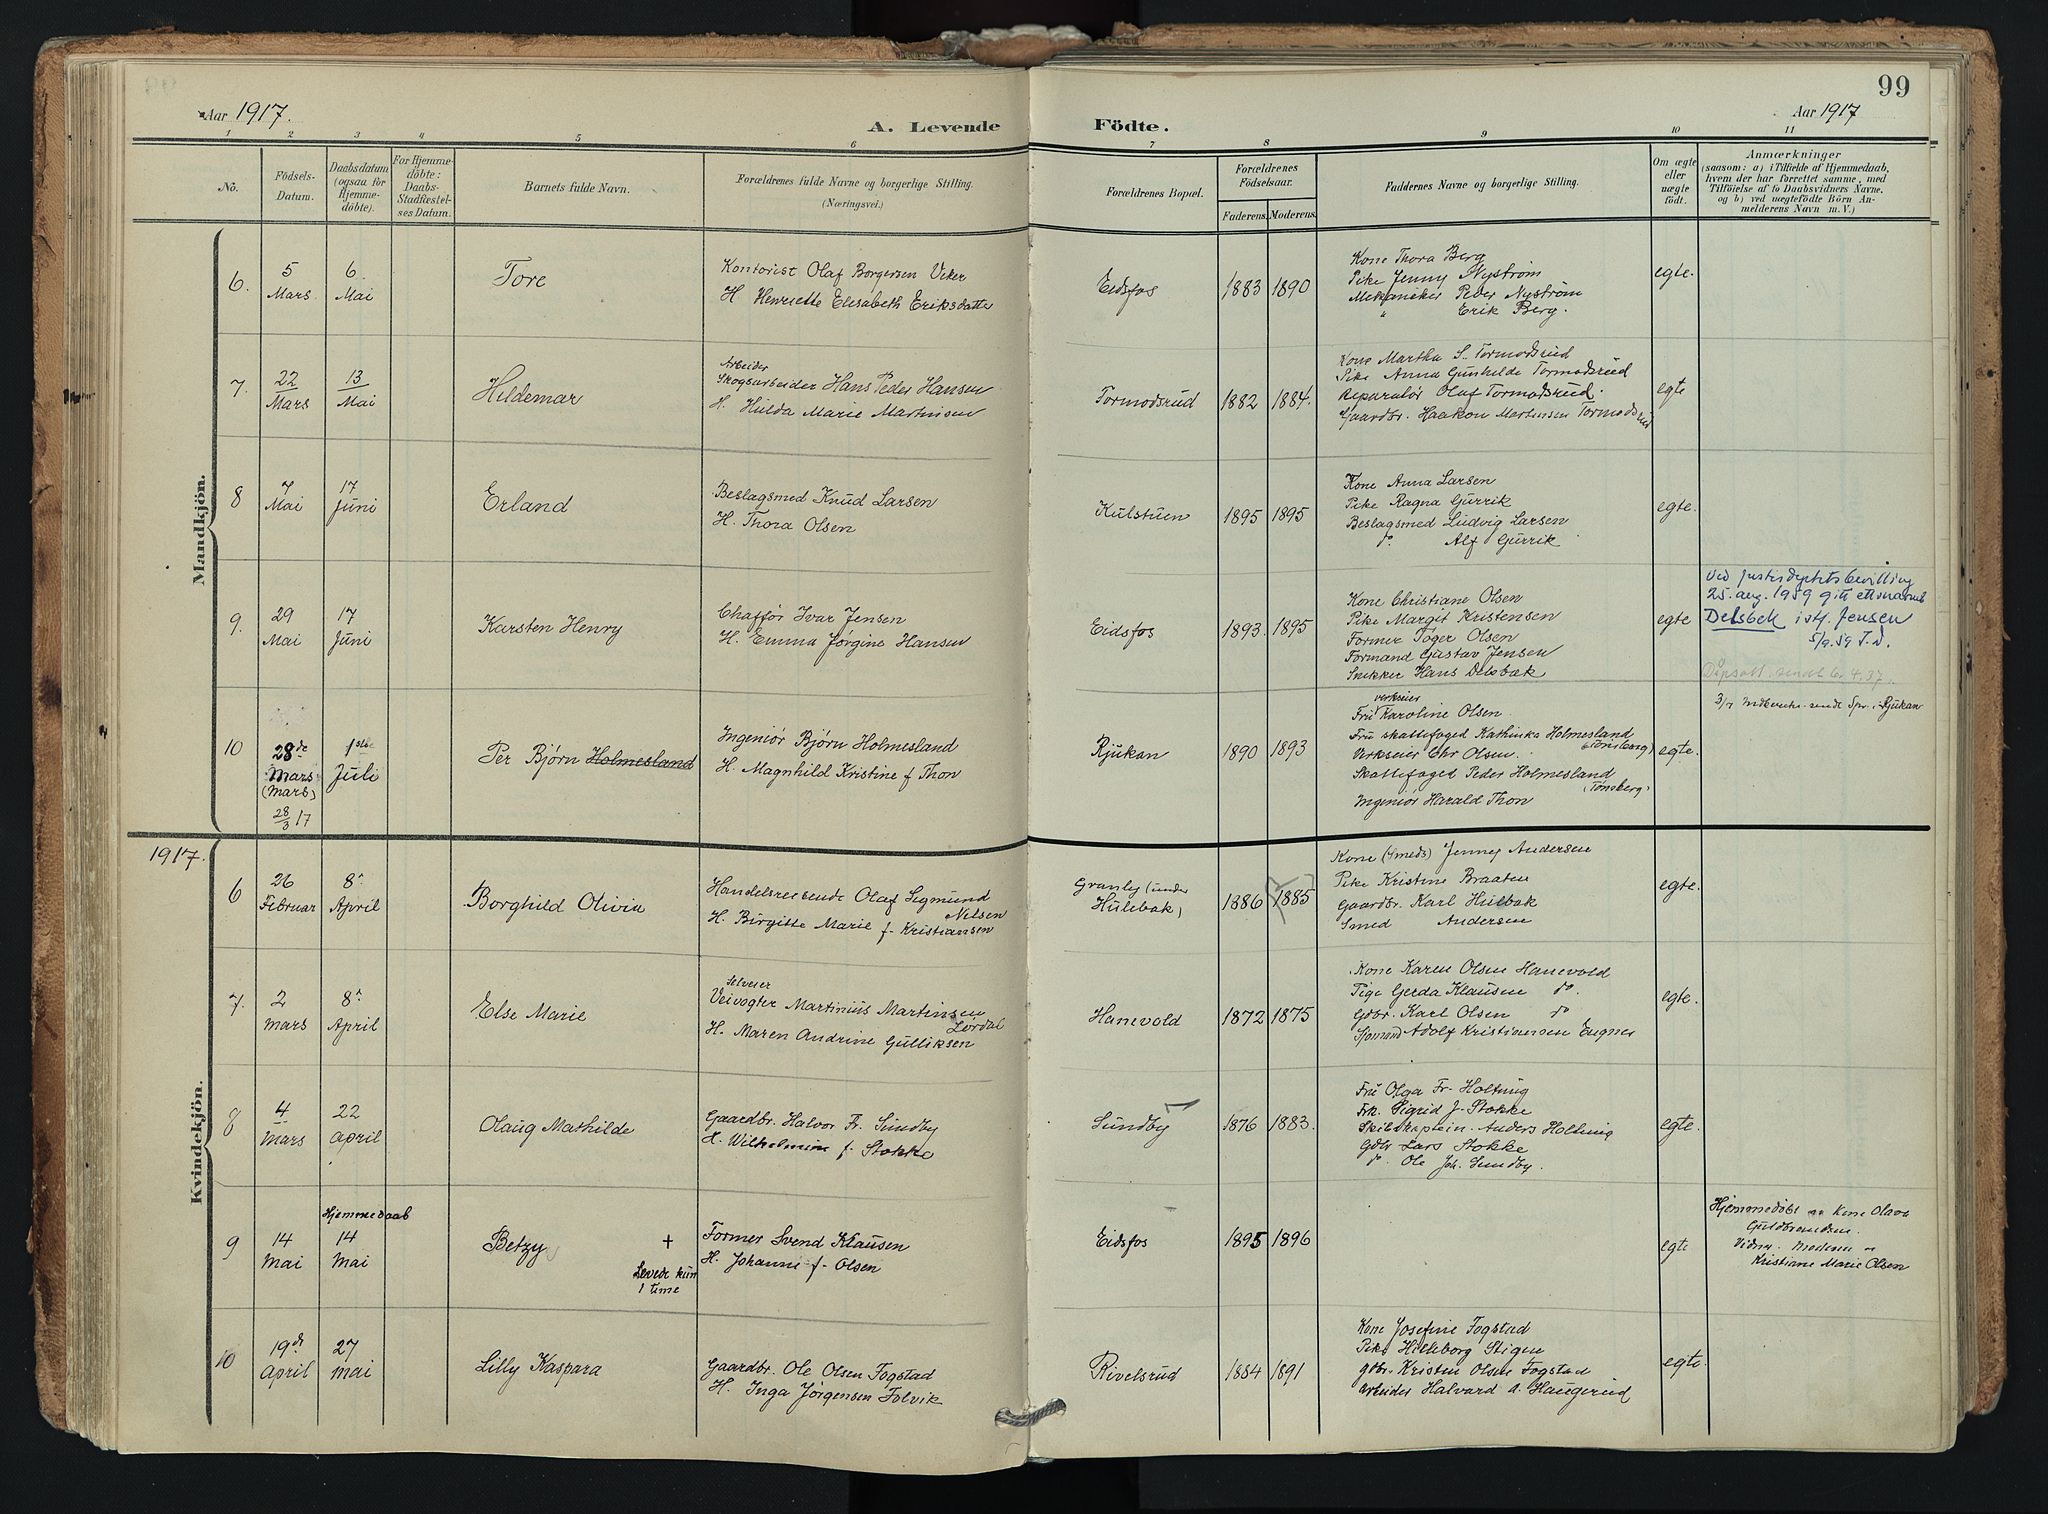 Aar 1917.
A. Levende Födte.
Aar 1917
99
1 2 3 4 5 6 7 8 9 10 11
No.
Födsels-Datum.
Daabsdatum (ogsaa for Hjemme-döbte).
For Hjemme-döbte: Daabs-Stadfæstel-ses Datum.
Barnets fulde Navn.
Forældrenes fulde Navne og borgerlige Stilling.
(Næringsvei.)
Forældrenes Bopæl.
Forældrenes Födselsaar.
Faderens. Moderens.
Faddernes Navne og borgerlige Stilling.
Om ægte eller uægte födt.
Anmærkninger
(saasom: a) i Tilfælde af Hjemmedaab,
hvem der har forrettet samme, med
Tilföielse af to Daabsvidners Navne.
og b) ved uægtefödte Börn An-
melderens Navn m. V.)
Mandkjön.
6. 5 Mars. 6. Mai
Tore
Kontorist Olaf Borgersen Viker
H. Henriette Elisabeth Eriksdatter
Eidsfos 1883 1890
Kone Thora Berg
Pike Jenny Nyström
Mekaniker Peder Nyström
" Erik Berg.
egte.
7. 22 Mars 13 Mai
Hildemar
Arbeider
Skogsarbeider Hans Peder Hansen
H. Hilda Marie Martinsen
Tormodsrud 1882 1884.
Kone Martha S. Tormodsrud
Pike Anna Gunhilde Tormodsrud
Reparatør Olaf Tormodsrud.
Gaardbr. Haakon Martinsen Tormodsrud
egte
8 7 Mai 17 Juni
Erland
Beslagsmed Knud Larsen
H. Thora Olsen
Kulstuen 1895 1895
Kone Anna Larsen
Pike Ragna Gurrik
Beslagsmed Ludvig Larsen
do. Alf Gurrik
egte.
9. 29 Mai 17 Juni
Karsten Henry
Chaffør Ivar Jensen
H. Emma Jørgine Hansen
Eidsfos 1893. 1895
Kone Christiane Olsen
Pike Margit Kristensen
Former Tóger Olsen
Formand Gustav Jensen
Snekker Hans Delsbæk
egte
Ved justisdeptets bevilling
25. aug. 1959 gitt etternavnet
Delsbek istf. Jensen
5/9.59 T.D.
Dåpsatt. sendt 6. 4. 37.
10 28de Mars (Mars) 28/3 17 1ste Juli
Per Bjørn Holmesland
Ingeniør Bjørn Holmesland
H. Magnhild Kristine f Thon
Rjukan 1890 1893
verkseier
Fru Karoline Olsen.
Fru skattefoged Kathinka Holmesland
(Tønsberg)
Verkseier Chr Olsen.
Skattefoged Peder Holmesland
(Tønsberg)
Ingeniør Harald Thon
egte.
sendt Spr. i Rjukan
1917.
Kvindekjön.
6 26 Februar 8' April
Borghild Olivia
Handelsreisende Olaf Sigmund
Nilsen
H. Birgitte Marie f. Kristiansen
Granly (under
Hulebak) 1886 1885
Kone (Smeds) Jenney Andersen
Pike Kristine Braaten
Gaardbr. Karl Hulbak
Smed Andersen
egte.
7. 2 Mars 8' April
Else Marie
Selveier
Veivogter Martinius Martinsen
Lørdal
H. Maren Andrine Gulliksen
Hanevold 1872 1875
Kone Karen Olsen Hanevold
Pige Gerda Klausen do.
Gdbr. Karl Olsen do
Sjømand Adolf Kristiansen Eugnes
egte.
8 4 Mars 22 April
Olaug Mathilde
Gaardbr. Halvor Fr. Sundby
H. Wilhelmine f. Stokke
Sundby 1876 1883.
Fru Olga Fr. Holtung
Frk. Sigrid J. Stokke
Skibskaptein. Anders Holtung
Gdbr Lars Stokke
do. Ole Joh. Sundby.
egte.
9 14 Mai Hjemmedaab 14 Mai
Betzy +
Levede kun
1 time
Former Svend Klausen
H. Johanne f. Olsen
Eidsfos 1895 1896
egte
Hjemmedøbt av Kone Olava
Guldbrandsen.
Vidner. Moderen og
Kristiane Marie Olsen
10 19de April 27 Mai
Lilly Kaspara
Gaardbr. Ole Olsen Fogstad
H. Inga Jørgensen Folvik
Rivelsrud 1884 1891
Kone Josefine Fogstad
Pike Hilleborg Stigen
gdbr. Kristen Olsen Fogstad
arbeider Halvard A. Haugerud
egte.